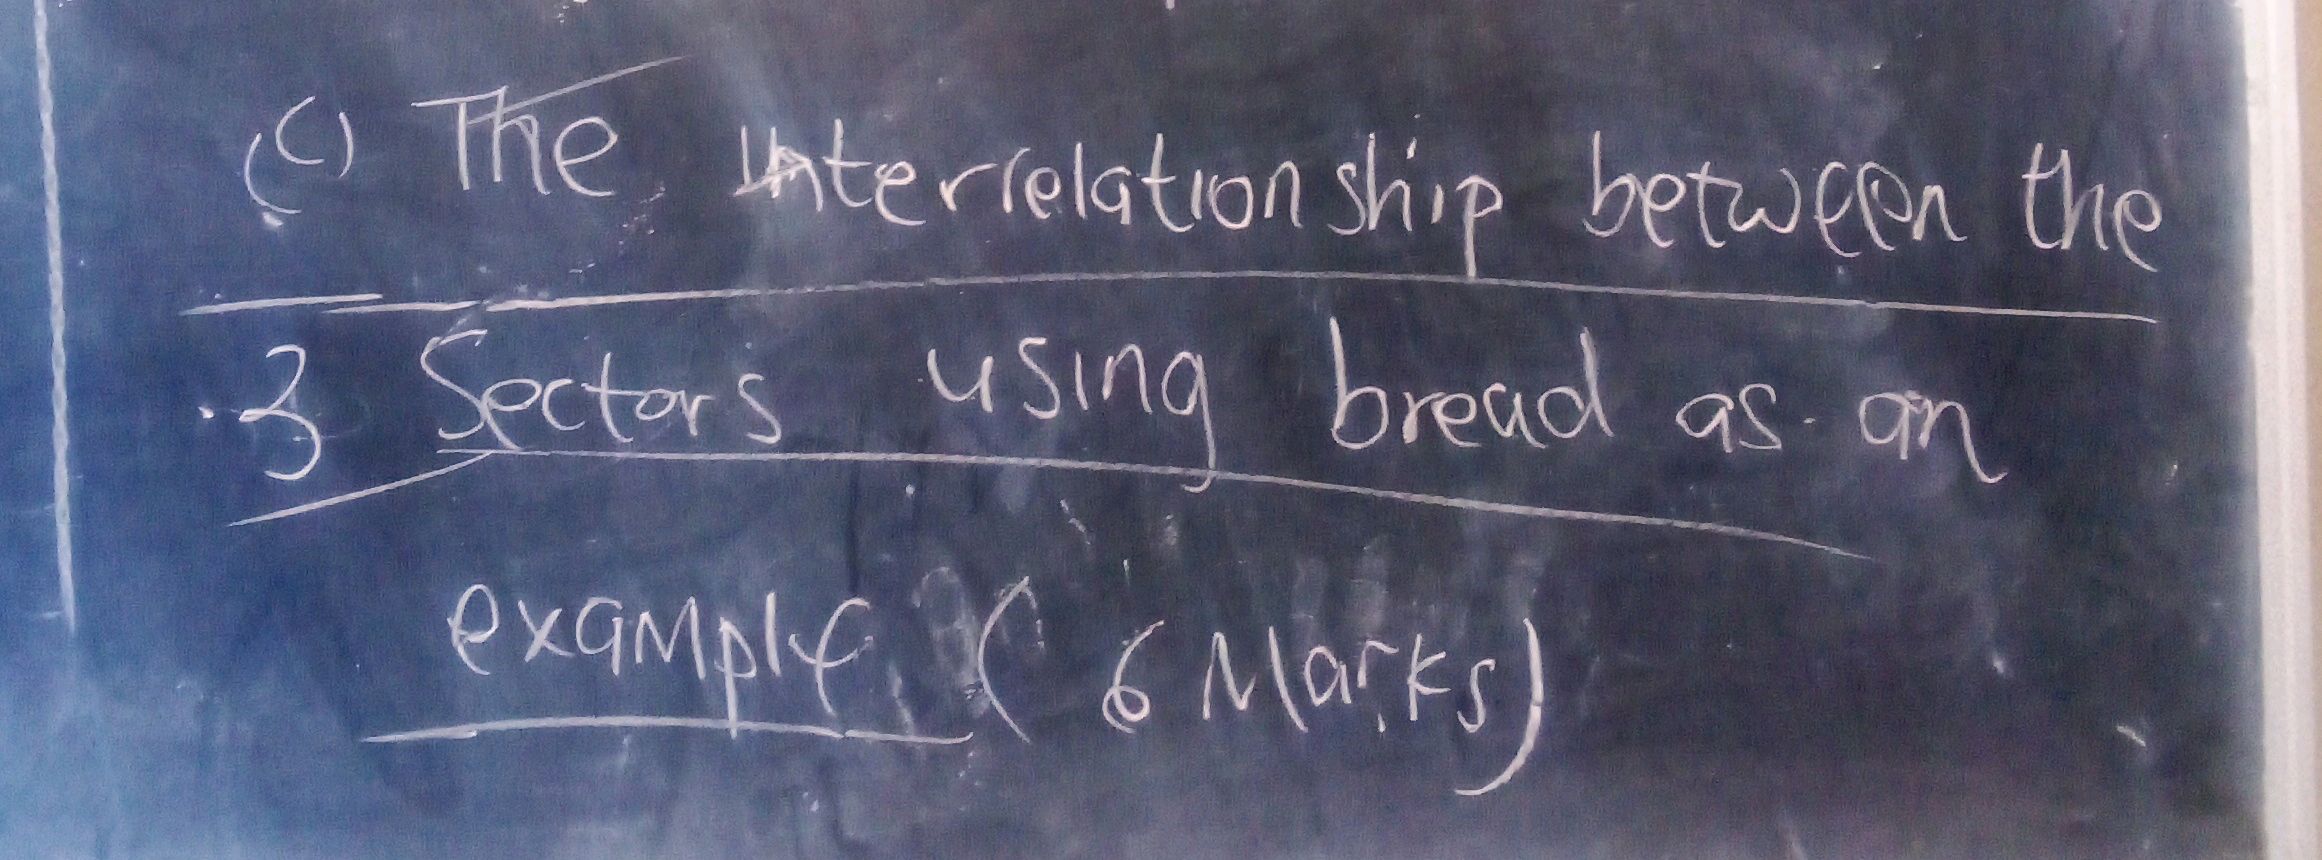 (c) The interrelationship between the
3 Sectors using bread as an
example (6 Marks)